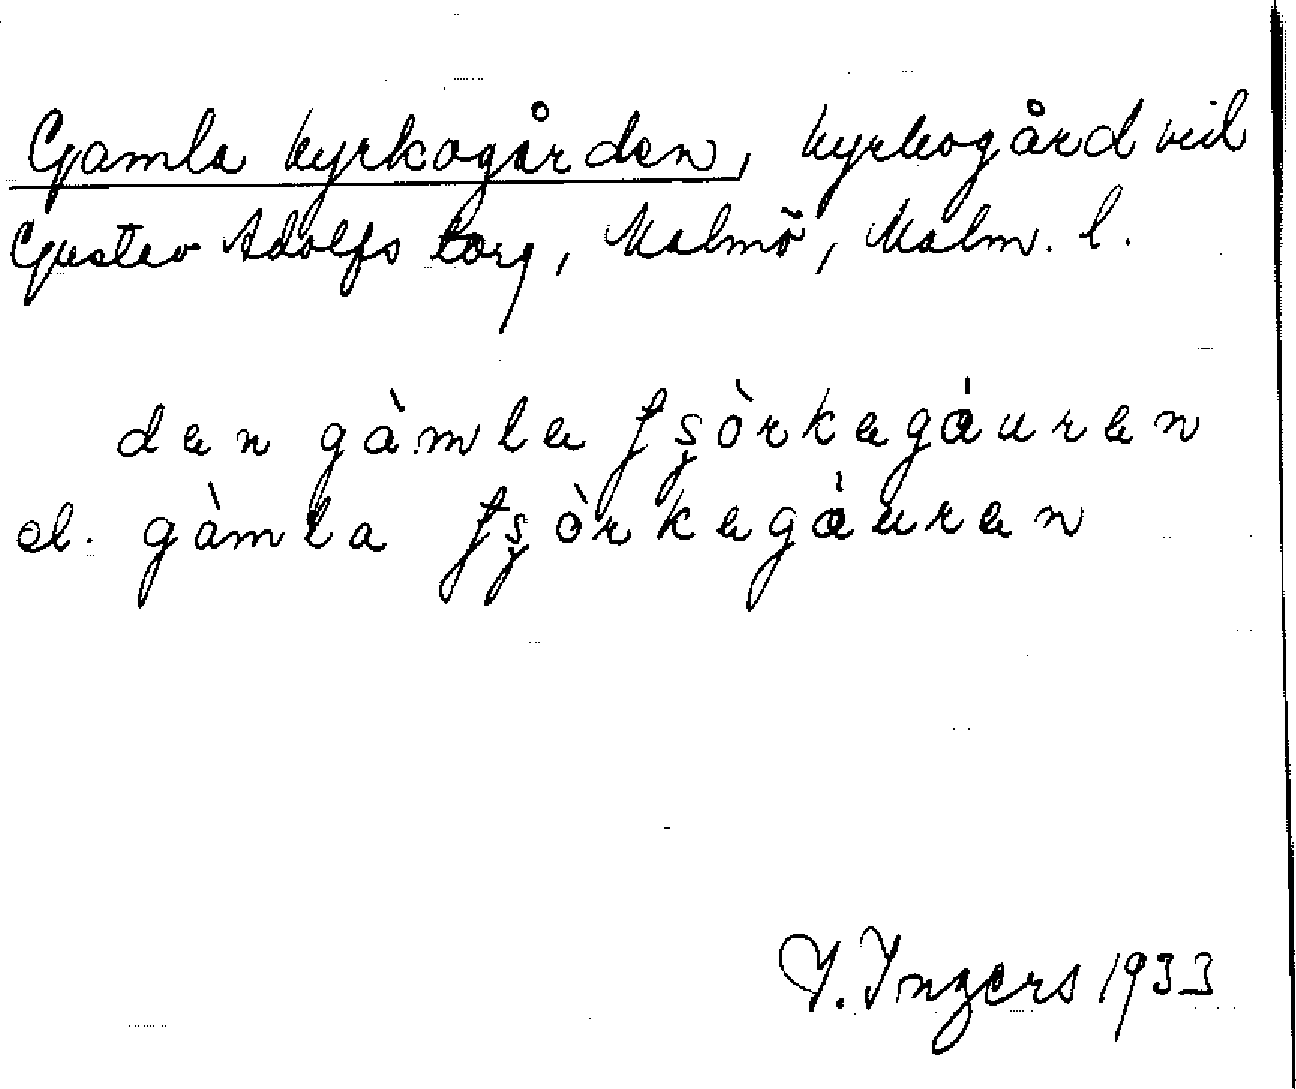 Gamla kyrkogården, kyrkogård vid
Gustav Adolfs torg, Malmö, Malm. l.
den gàmla ʆşòrkagáuren
el. gàmla ʆşòrkagáuren
I. Ingers 1933